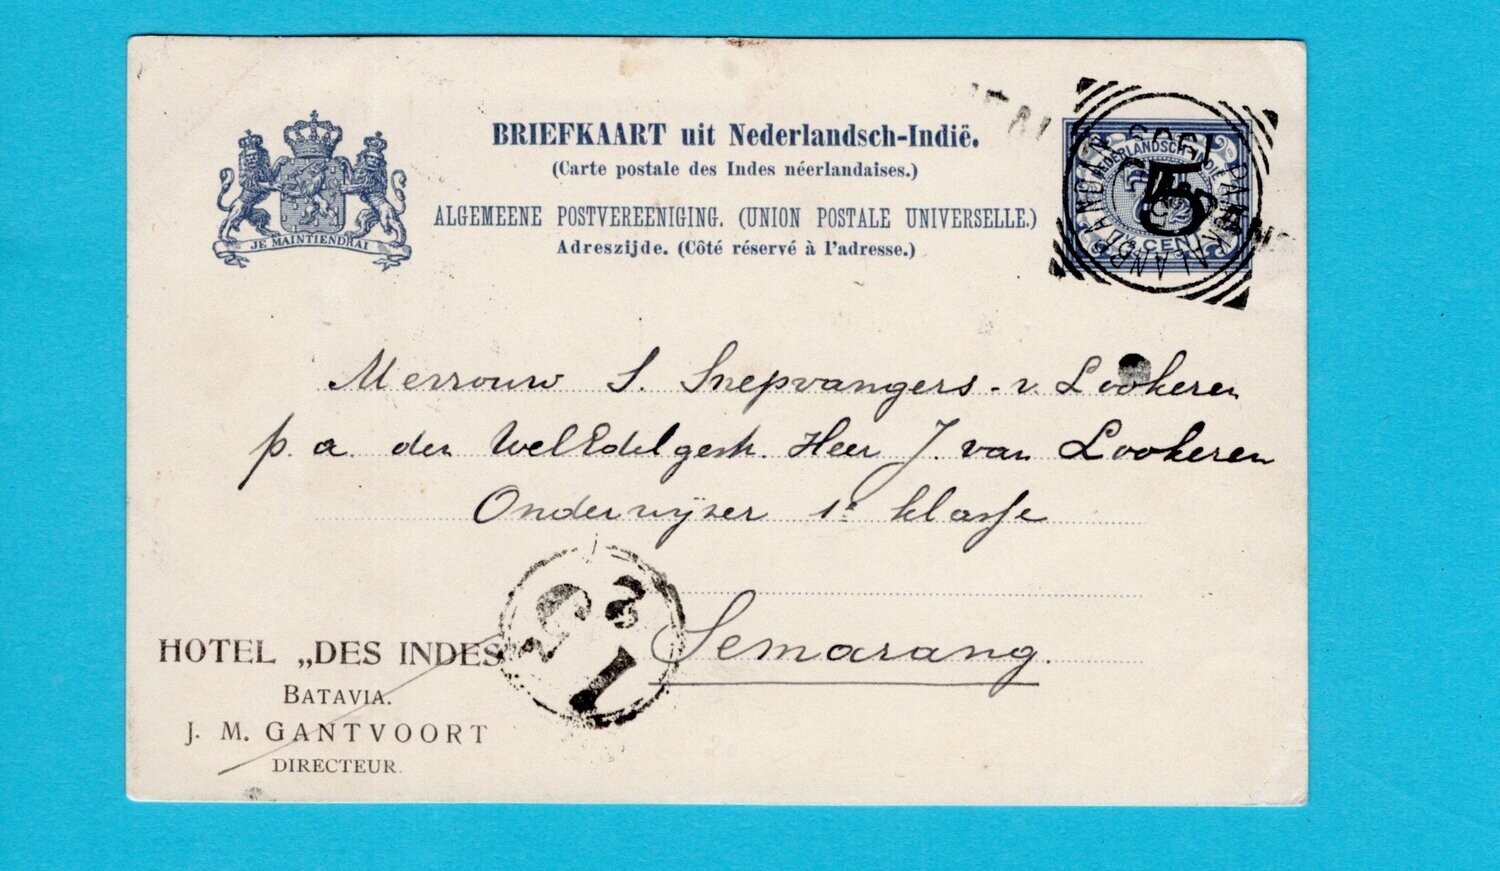 BRIEFKAART uit Nederlandsch-Indië.
(Carte postale des Indes néerlandaises.)
ALGEMEENE POSTVEREENIGING. (UNION POSTALE UNIVERSELLE.)
Adreszijde. (Côté réservé à l'adresse.)
JE MAINTIENDRAI
NEDERLANDSCH-INDIË
5
CENT
Mevrouw S. Snepvangers - v. Lookeren
p. a. den WelEdelgestr. Heer J. van Lookeren
Onderwijzer 1e klasse
Semarang.
HOTEL „DES INDES”
BATAVIA.
J. M. GANTVOORT
DIRECTEUR.